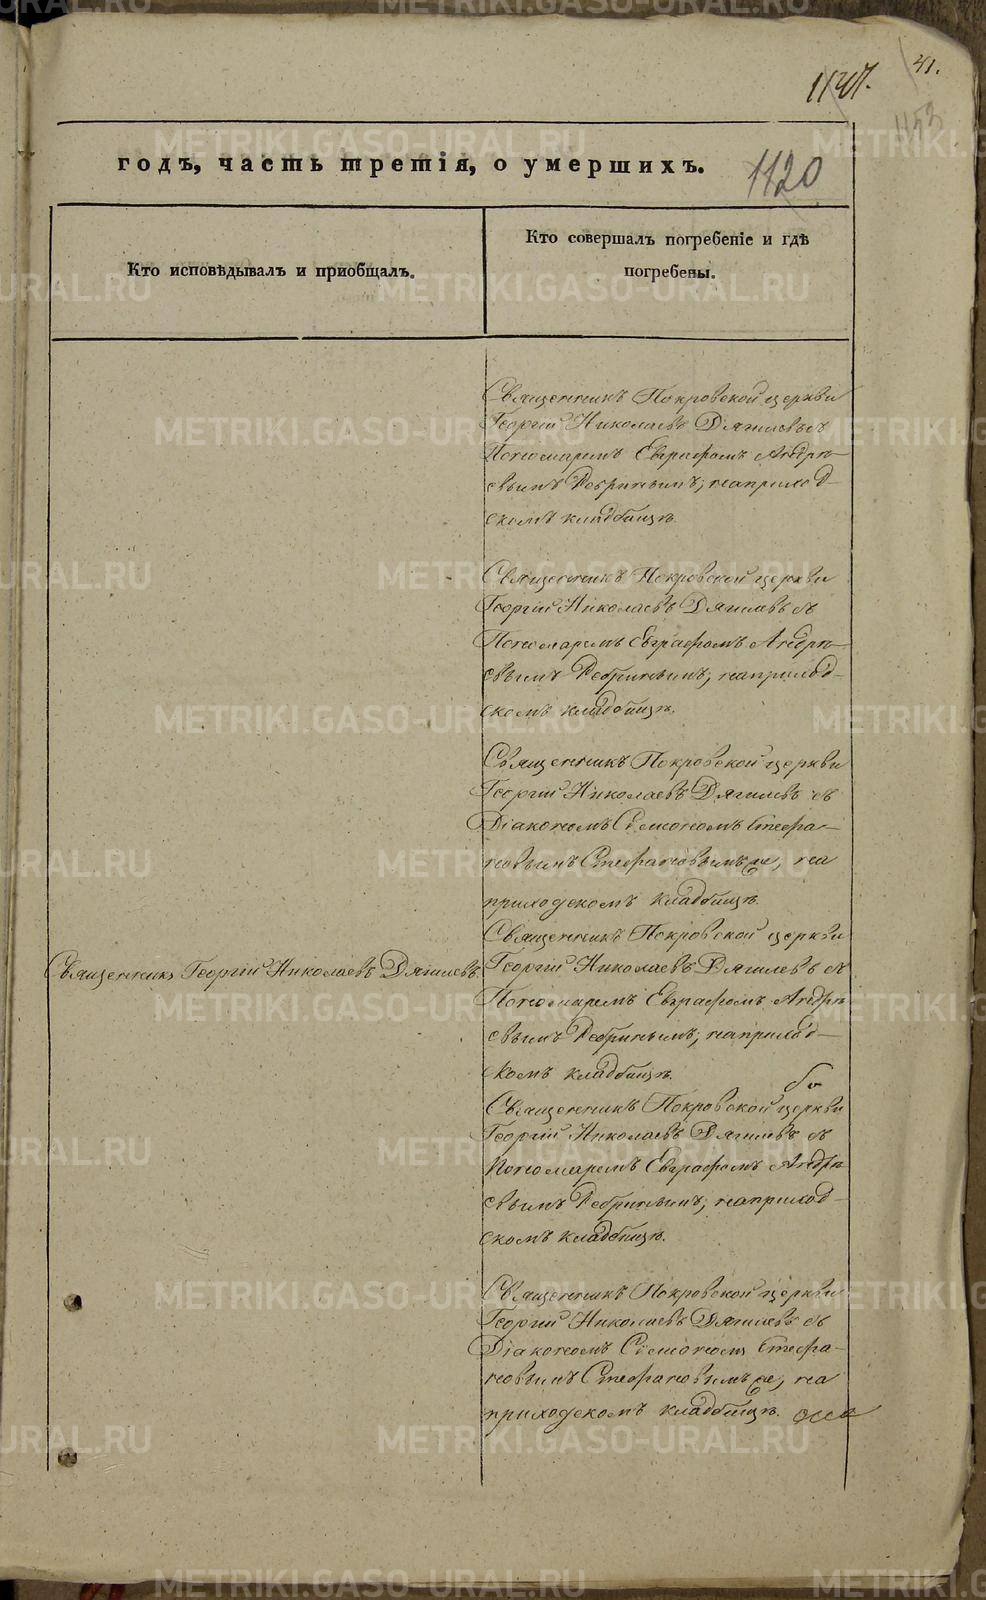 41.
1153
1120
годъ, часть третія, о умершихъ.
Кто исповѣдывалъ и приобщалъ.
Кто совершалъ погребеніе и гдѣ
погребены.
Священникъ Покровской церкви
Георгій Николаевъ Дягилевъ съ
Пономаремъ Евграфомъ Андрѣ-
евымъ Ребринымъ; на приход-
скомъ кладбищѣ.
Священникъ Покровской церкви
Георгій Николаевъ Дягилевъ съ
Пономаремъ Евграфомъ Андрѣ-
евымъ Ребринымъ; на приход-
скомъ кладбищѣ.
Священникъ Покровской церкви
Георгій Николаевъ Дягилевъ съ
Діакономъ Сімономъ Стефа-
новымъ Стефановымъ же, на
приходскомъ кладбищѣ.
Священникъ Георгій Николаевъ Дягилевъ.
Священникъ Покровской церкви
Георгій Николаевъ Дягилевъ съ
Пономаремъ Евграфомъ Андрѣ
евымъ Ребринымъ; на приход-
скомъ кладбищѣ.
Священникъ Покровской церкви
Георгій Николаевъ Дягилевъ съ
Пономаремъ Евграфомъ Андрѣ
евымъ Ребринымъ; на приход-
скомъ кладбищѣ.
Священникъ Покровской церкви
Георгій Николаевъ Дягилевъ съ
Діакономъ Сімономъ Стефа-
новымъ Стефановымъ же, на
приходскомъ кладбищѣ.
METRIKI.GASO-URAL.RU